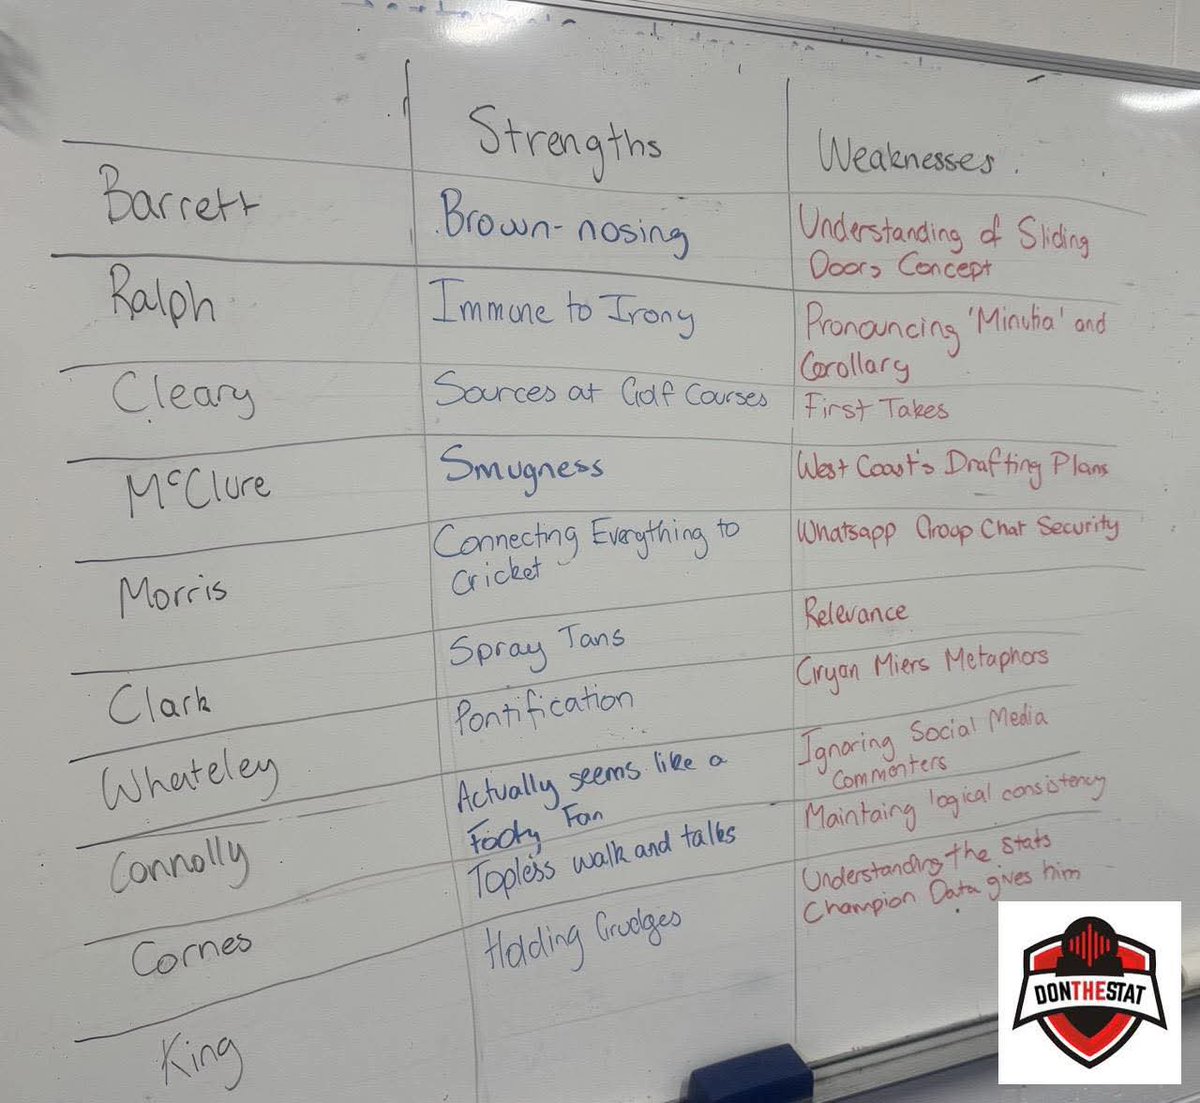 Strengths
Weaknesses.
Barrett
Brown-nosing
Understanding of Sliding
Doors Concept
Ralph
Immune to Irony
Pronouncing 'Minutia' and
Corollary
Cleary
Sources at Golf Courses
First Takes
McClure
Smugness
West Coast's Drafting Plans
Morris
Connecting Everything to
Cricket
Whatsapp Group Chat Security
Clark
Spray Tans
Relevance
Whateley
Pontification
Gryan Miers Metaphors
Connolly
Actually seems like a
Footy Fan
Ignoring Social Media
Commenters
Cornes
Topless walk and talks
Maintaing logical consistency
King
Holding Grudges
Understanding the Stats
Champion Data gives him
DONTHESTAT